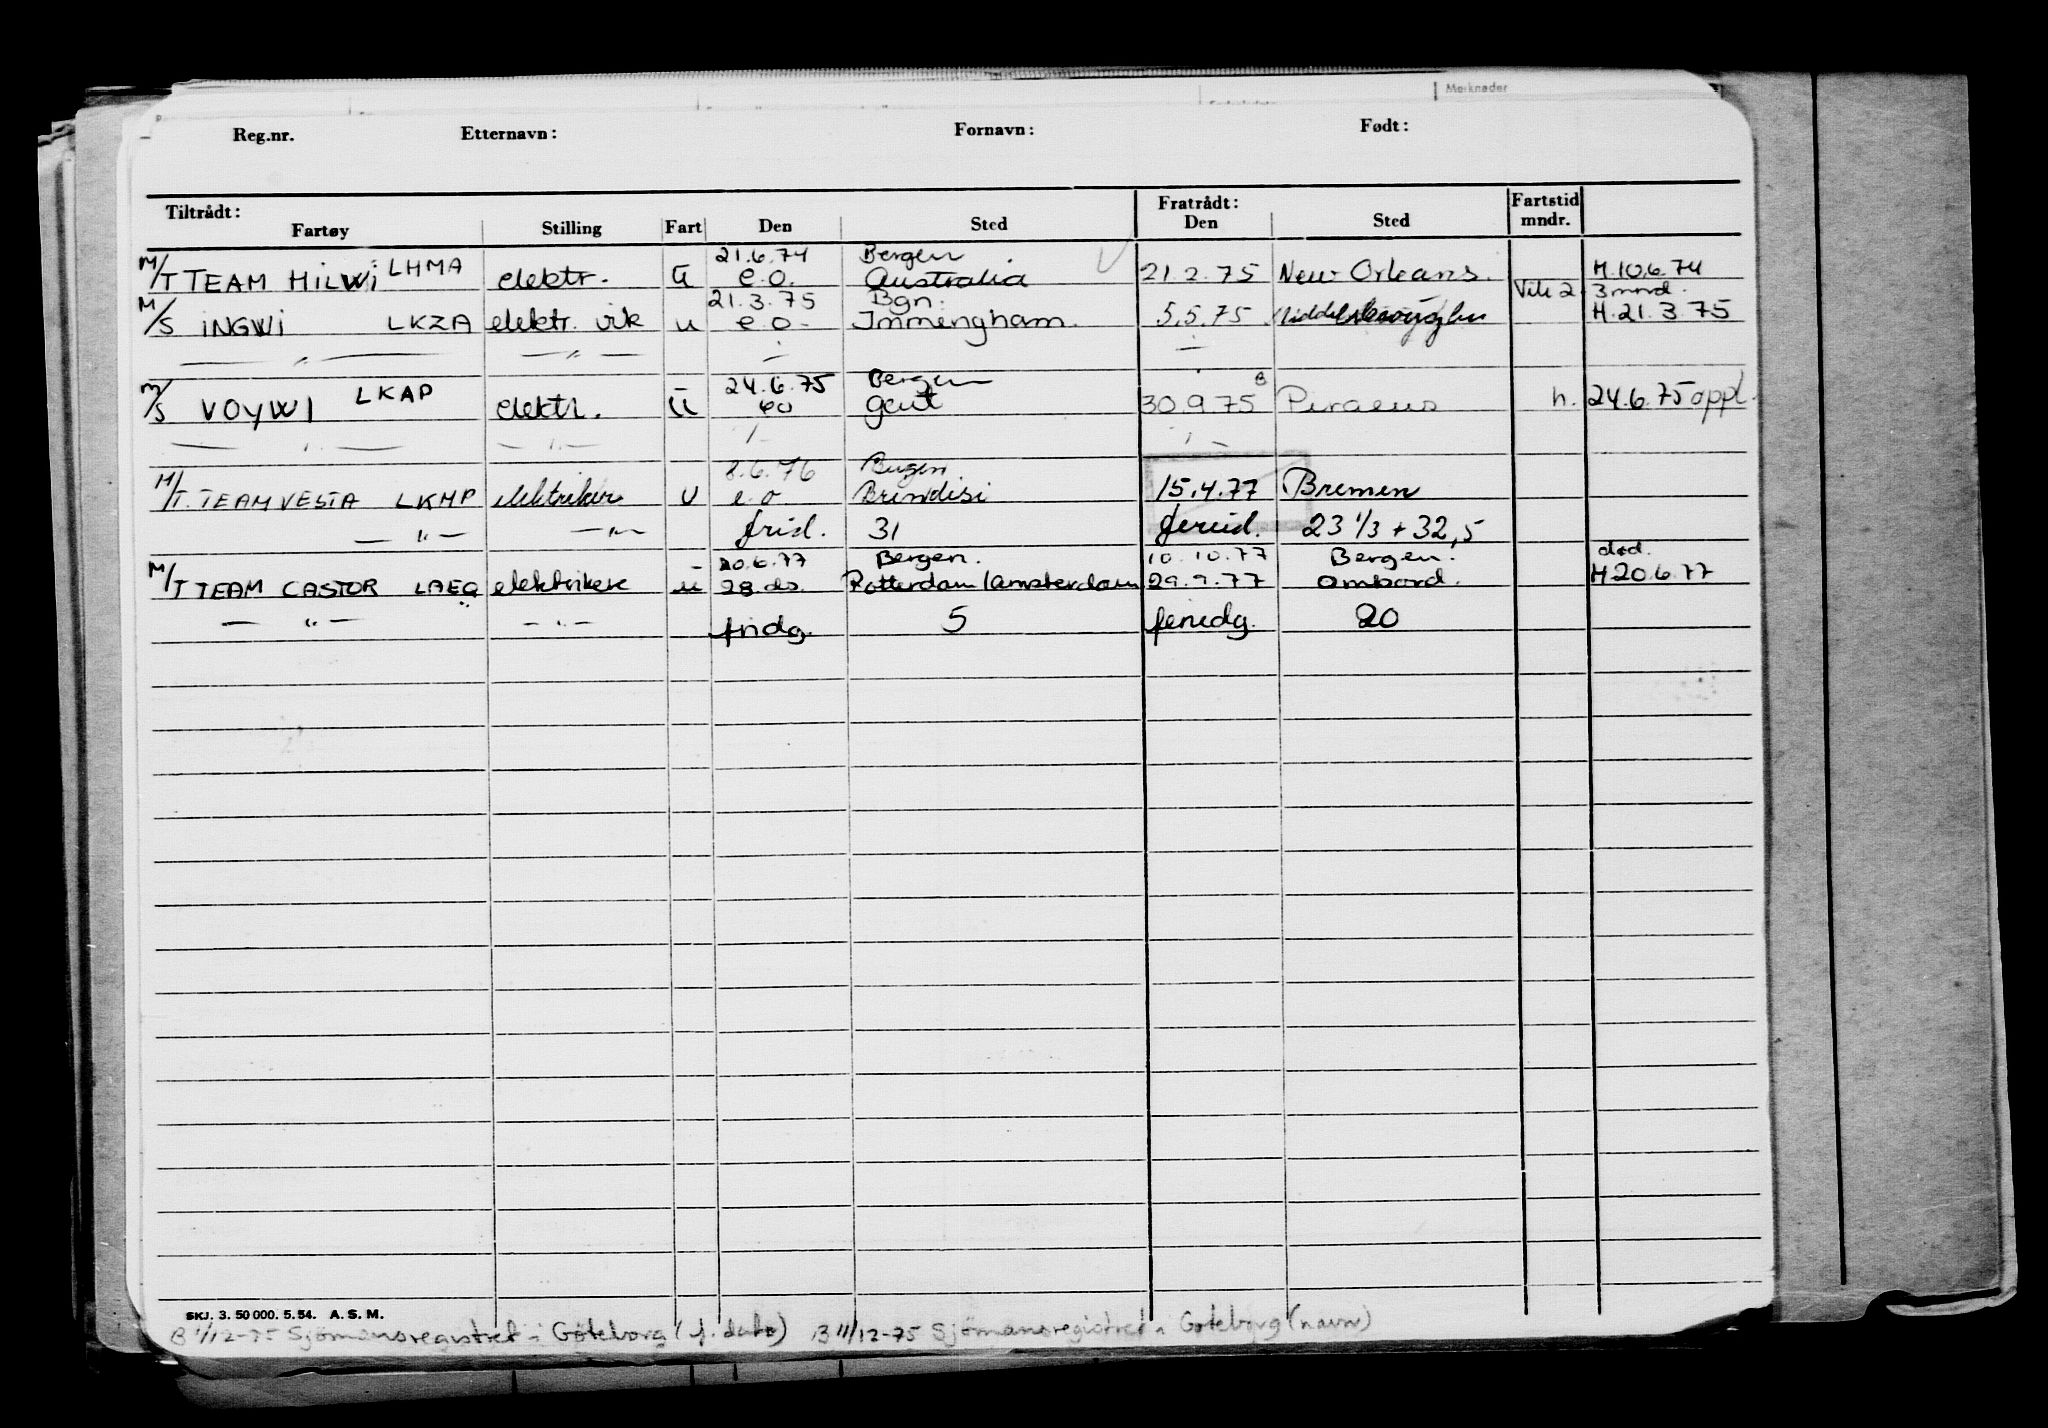 Merknader
Reg.nr. Etternavn: Fornavn: Født:
Tiltrådt: Fratrådt: Fartstid
Fartøy Stilling Fart Den Sted Den Sted mndr.
21.6.74 Bergen
M/T TEAM HILWI LHMA elektr. u e.o. Australia 21.2.75 New Orleans. H.10.6.74
21.3.75 Bgn. 3 mnd.
M/S INGWI LKZA elektr. vik u e.o. Immingham. 5.5.75 H.21.3.75
— " — — " —
24.6.75 Bergen B
M/S VOYWI LKAP elektr. u eo Gent 30.9.75 Piraeus h. 24.6.75 oppl.
— " — — " —
8.6.76 Bergen
M/T. TEAM VESTA LKMP elektriker u e.o Brindisi 15.4.77 Bremen
— " — — " — frid. 31 feried. 23 1/3 + 32,5
20.6.77 Bergen. 10.10.77 Bergen. død.
M/T TEAM CASTOR LAEQ elektriker u 28. ds. Rotterdam/Amsterdam 29.9.77 ombord. H 20.6.77
— " — — " — fridg. 5 feriedg. 20
SKJ. 3. 50 000. 5. 54. A. S. M.
B 1/12-75 Sjömansregistret i Göteborg (f. dato) B 11/12-75 Sjömansregistret i Göteborg (navn)